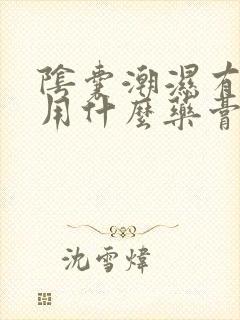 陰囊潮濕有
用什麼藥膏
沈雪煒